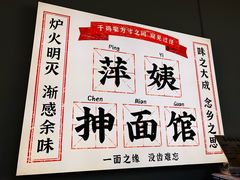 千鸡蛋方寸之间 回见过往
炉火明灭 渐感余味
Ping Yi
萍姨
Chen Mian Guan
抻面馆
味之大成 念乡之思
一面之缘 没齿难忘